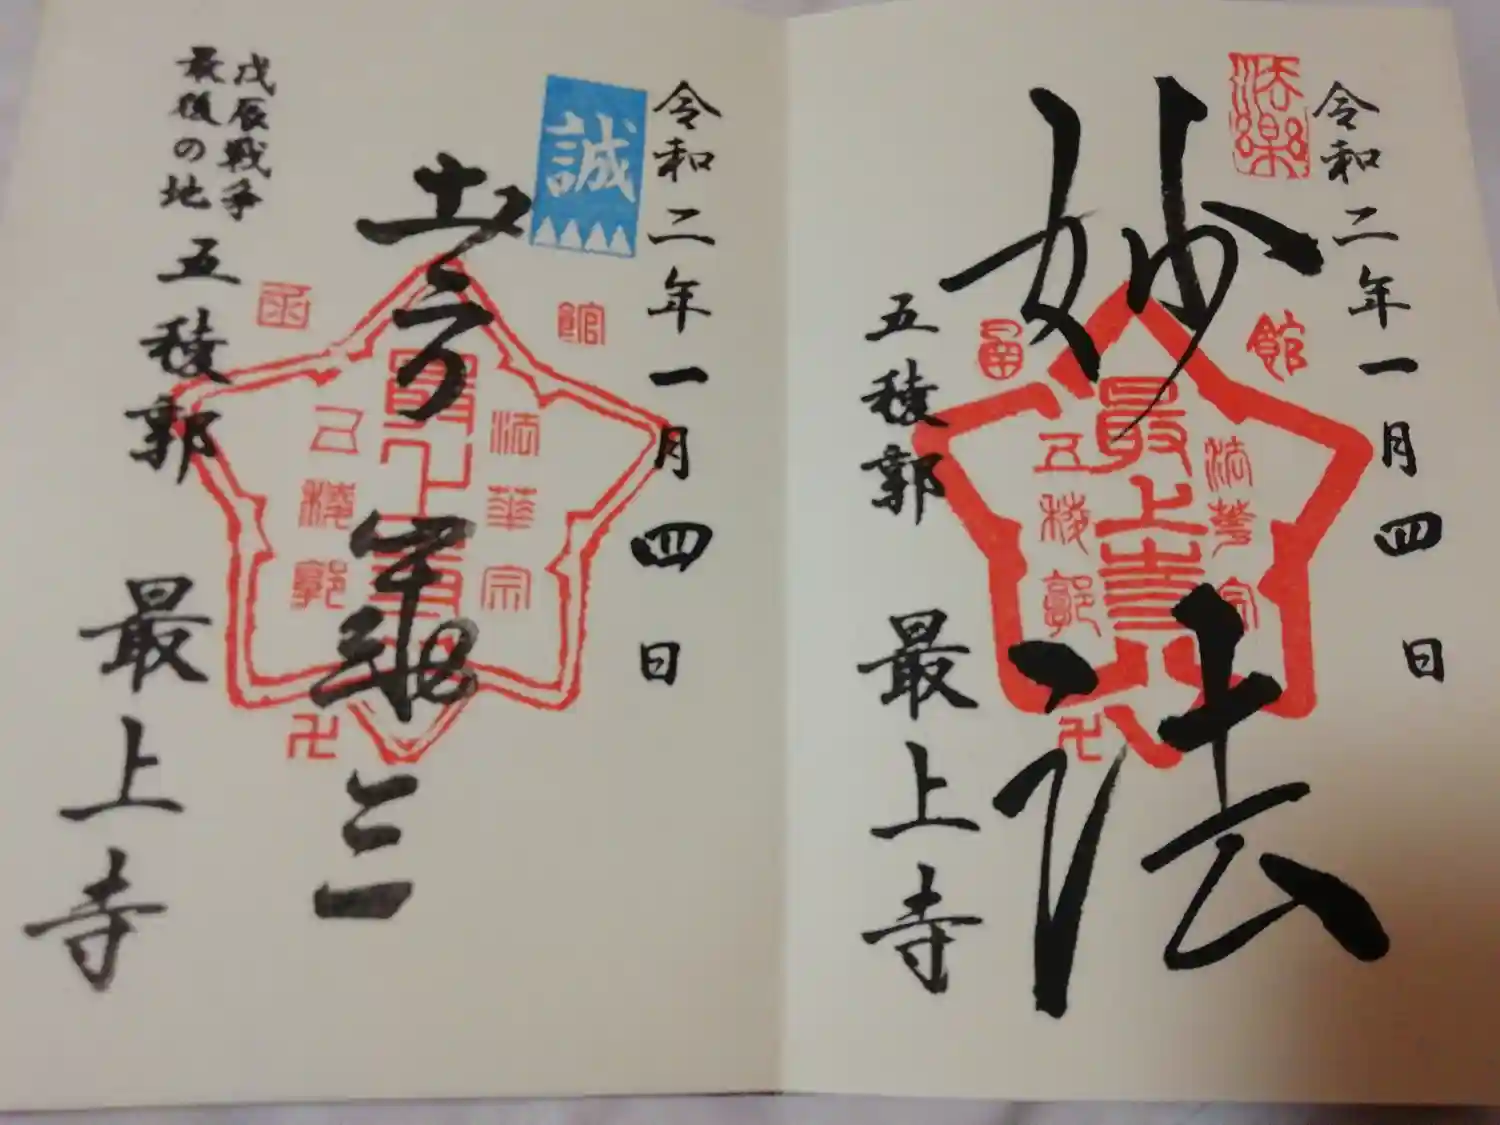 令和二年一月四日
法楽
妙法
館
函
法華宗
最上寺
五稜郭
卍
五稜郭 最上寺
令和二年一月四日
誠
土方歳三
館
函
法華宗
最上寺
五稜郭
卍
戊辰戦争
最後の地
五稜郭 最上寺